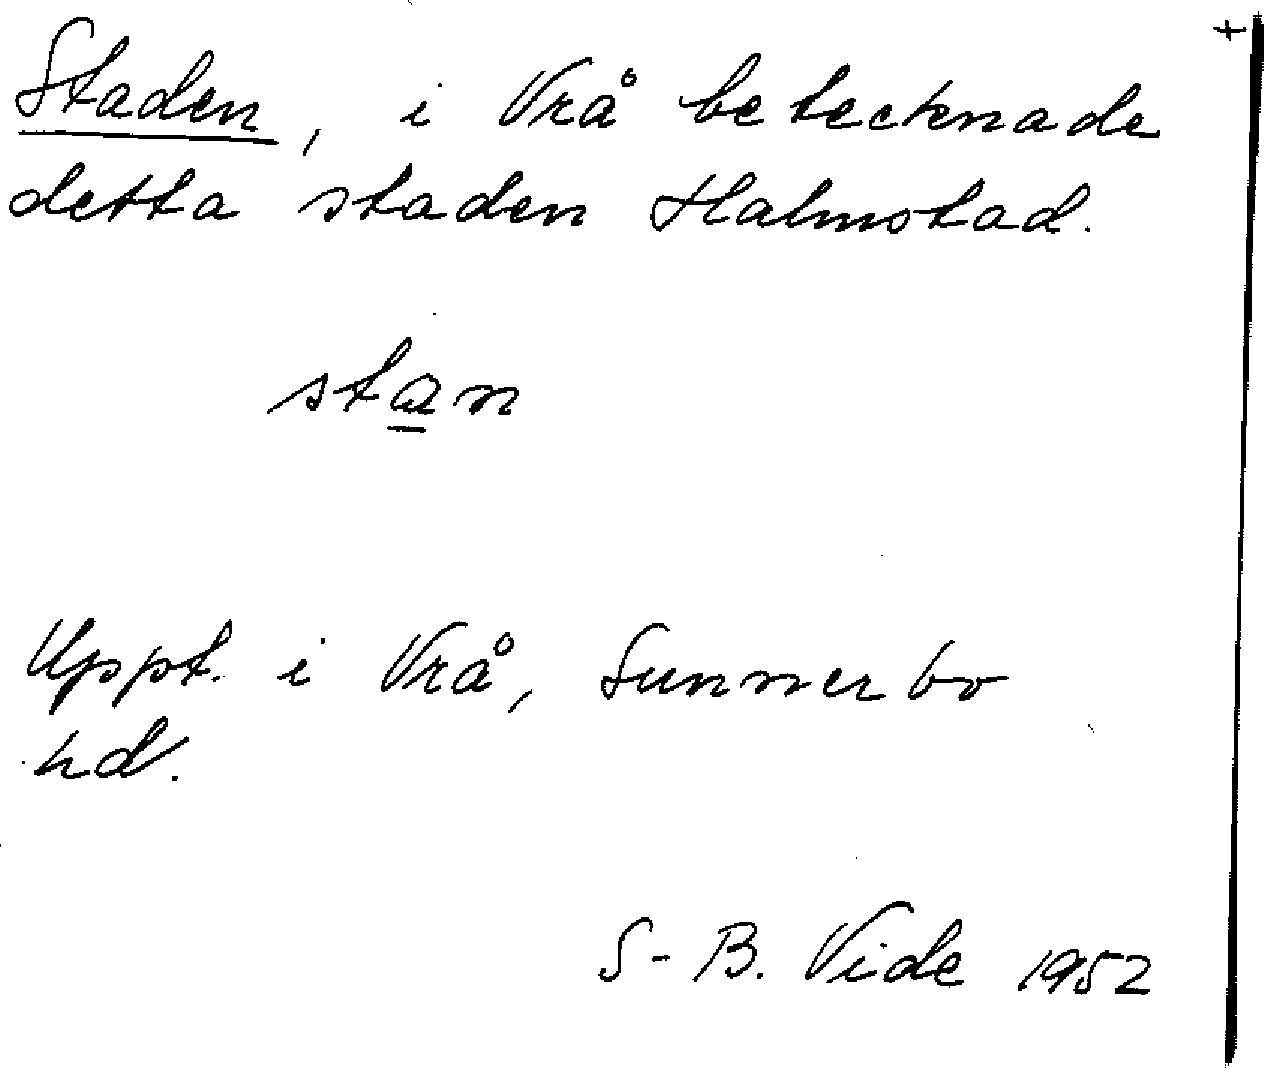 Staden, i Vrå betecknade
detta staden Halmstad.
stan
Uppt. i Vrå, Sunnerbo
hd.
S-B. Vide 1952